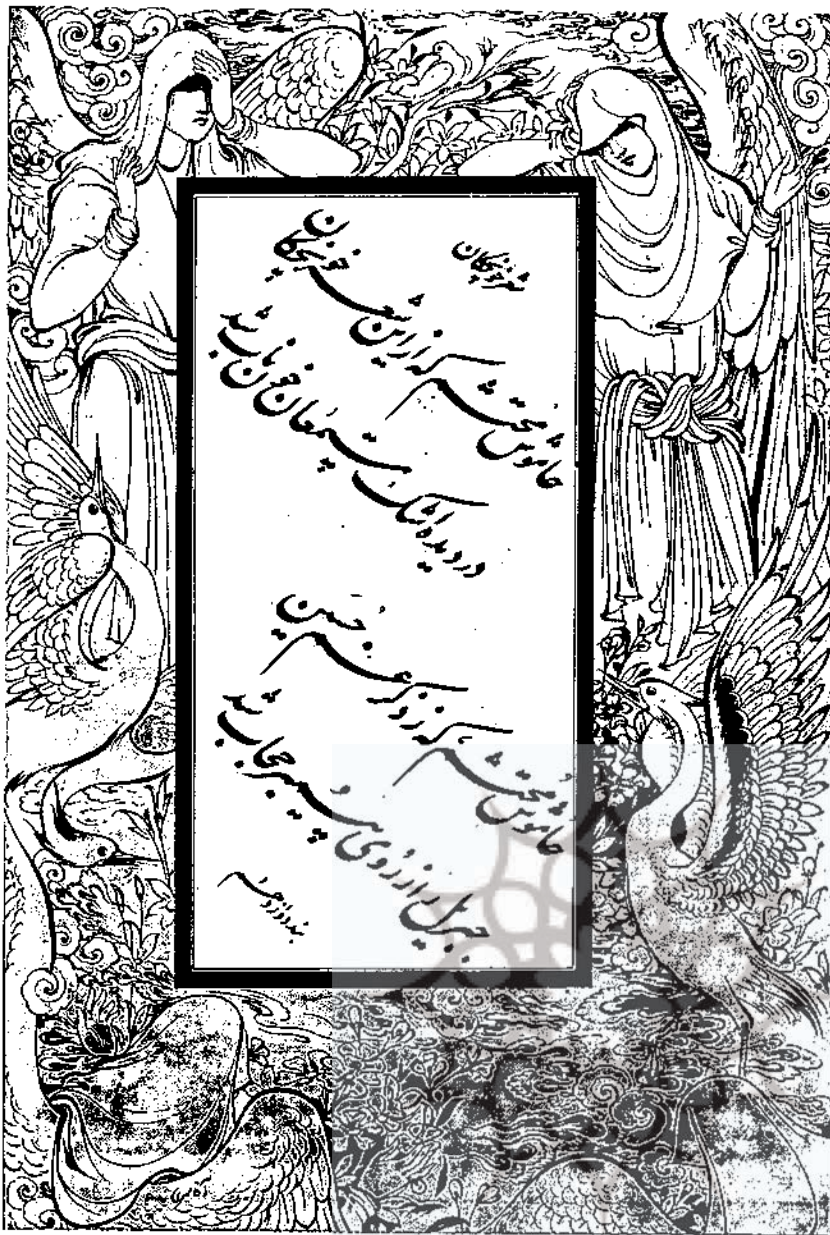 شعر خونچکان
خاموش محتشم که از این شعر خونچکان
در دیده اشک مستمعان خون ناب شد
خاموش محتشم که ز ذکر غم حسین
جبریل را ز روی پیمبر حجاب شد
بند دوازدهم